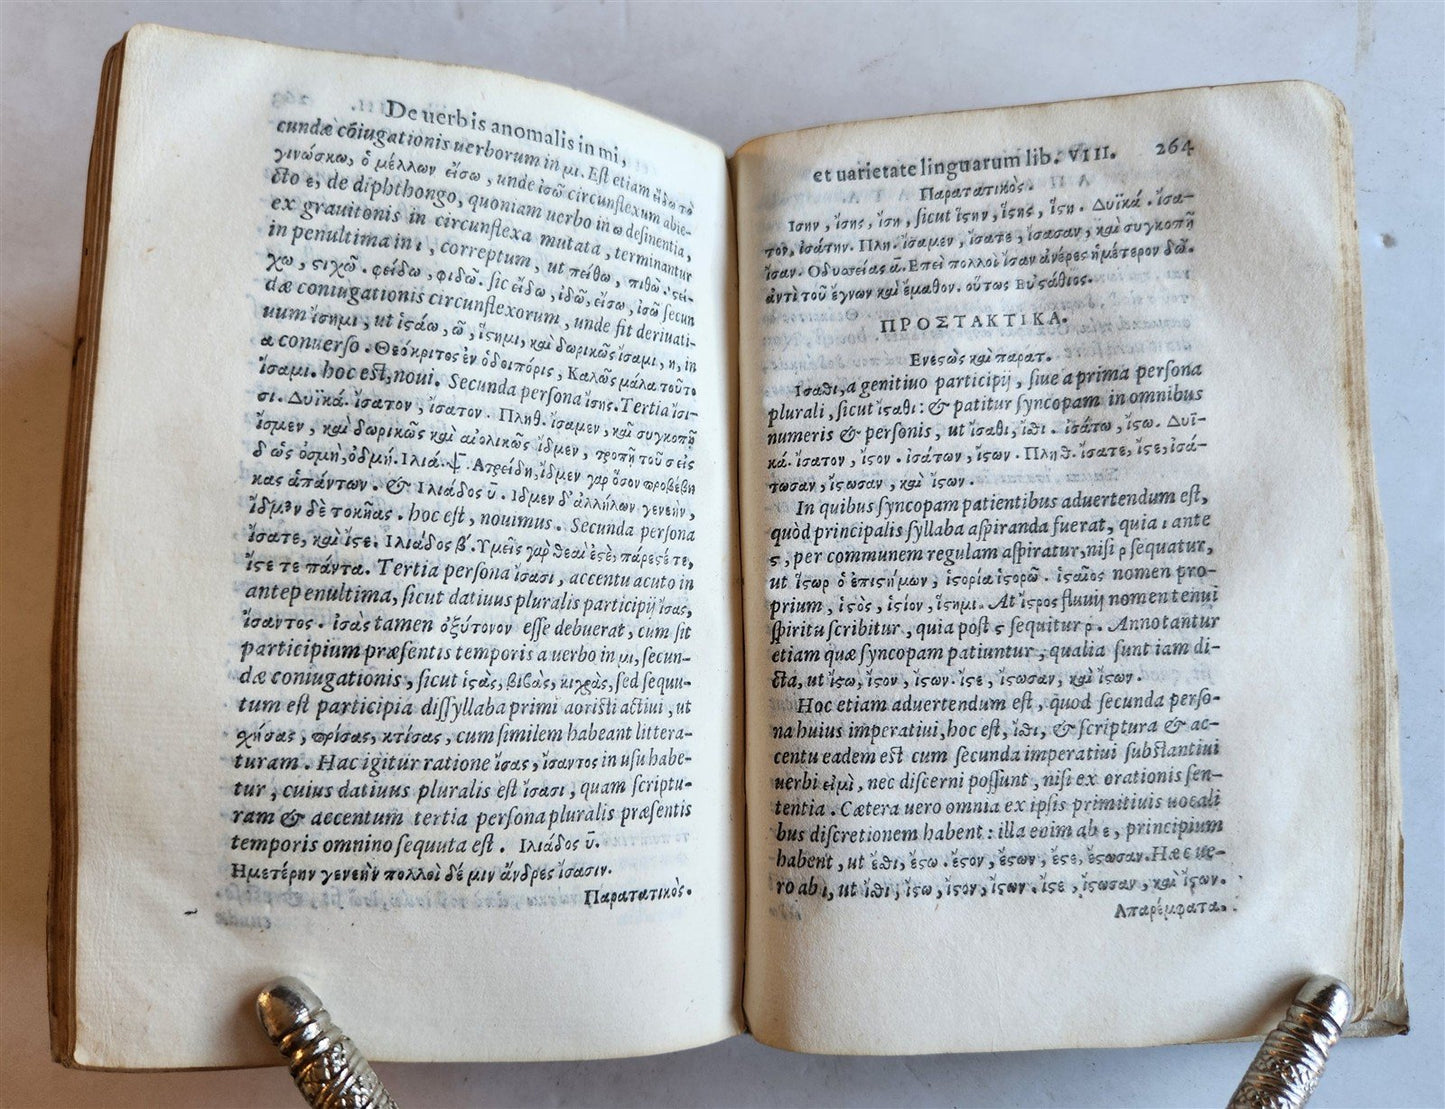 De uerbis anomalis in mi,
cundæ cõiugationis uerborum in μι. Est etiam εἴδω τὸ
γινώσκω, ὁ μέλλων εἴσω, unde ἰσῶ circunflexum abie-
cto ε, de diphthongo, quoniam uerbo in ω desinentia,
ex grauitonis in circunflexa mutata, terminantur
in penultima in ι, correptum, ut πείθω, πιθῶ. ςεί-
χω, ςιχῶ. φείδω, φιδῶ. sic εἴδω, ἰδῶ, εἴσω, ἰσῶ secun
dæ coniugationis circunflexorum, unde fit deriuati-
uum ἴσημι, ut ἱςάω, ῶ, ἵςημι, καὶ δωρικῶς ἴσαμι, η, in
α conuerso. Θεόκριτος ἐν ὁδοιπόρις, Καλῶς μάλα τοῦτο
ἴσαμι. hoc est, noui. Secunda persona ἴσης. Tertia ἴσι-
σι. Δυϊκά. ἴσατον, ἴσατον. Πληθ. ἴσαμεν, καὶ συγκοπῇ
ἴσμεν, καὶ δωρικῶς καὶ αἰολικῶς ἴδμεν, τροπῇ τοῦ σ εἰς
δ ὡς ὀσμὴ, ὀδμή. Ιλιά. ψ. Ατρείδη, ἴδμεν γὰρ ὅσον προβέβη
κας ἁπάντων. & Ιλιάδος ῡ. Ιδμεν δ' ἀλλήλων γενεὴν,
ἴδμεν δὲ τοκῆας. hoc est, nouimus. Secunda persona
ἴσατε, καὶ ἴςε. Ιλιάδος β'. Υμεῖς γὰρ θεαὶ ἐςὲ, πάρεςέ τε,
ἴςε τε πάντα. Tertia persona ἴσασι, accentu acuto in
antepenultima, sicut datiuus pluralis participij ἴσας,
ἴσαντος. ἰσὰς tamen ὀξύτονον esse debuerat, cum sit
participium præsentis temporis a uerbo in μι, secun-
dæ coniugationis, sicut ἱςὰς, βιβὰς, κιχρὰς, sed sequu-
tum est participia dissyllaba primi aoristi actiui, ut
χρήσας, πρίσας, κτίσας, cum similem habeant littera-
turam. Hac igitur ratione ἴσας, ἴσαντος in usu habe-
tur, cuius datiuus pluralis est ἴσασι, quam scriptu-
ram & accentum tertia persona pluralis præsentis
temporis omnino sequuta est. Ιλιάδος ῡ.
Ημετέρην γενεὴν πολλοὶ δέ μιν ἄνδρες ἴσασιν.
Παρατατικὸς.
et uarietate linguarum lib. VIII. 264
Παρατατικὸς.
Ισην, ἴσης, ἴση, sicut ἵςην, ἵςης, ἵςη. Δυϊκά. ἴσα-
τον, ἰσάτην. Πλη. ἴσαμεν, ἴσατε, ἴσασαν, καὶ συγκοπῇ
ἴσαν. Οδυσσείας ᾱ. Επεὶ πολλοὶ ἴσαν ἀνέρες ἡμέτερον δῶ.
ἀντὶ τοῦ ἔγνων καὶ ἔμαθον. οὕτως Ευςάθιος.
ΠΡΟΣΤΑΚΤΙΚΑ.
Ενεςὼς καὶ παρατ.
Ισαθι, a genitiuo participij, siue a prima persona
plurali, sicut ἵςαθι: & patitur syncopam in omnibus
numeris & personis, ut ἴσαθι, ἴθι. ἰσάτω, ἴςω. Δυϊ-
κά. ἴσατον, ἴςον. ἰσάτων, ἴςων. Πληθ. ἴσατε, ἴςε, ἰσά-
τωσαν, ἴςωσαν, καὶ ἴςων.
In quibus syncopam patientibus aduertendum est,
quòd principalis syllaba aspiranda fuerat, quia ι ante
ς, per communem regulam aspiratur, nisi ρ sequatur,
ut ἵςωρ ὁ ἐπιςήμων, ἱςορία ἱςορῶ. ἱςαῖος nomen pro-
prium, ἱςὸς, ἱςίον, ἵςημι. At ἴςρος fluuij nomen tenui
spiritu scribitur, quia post ς sequitur ρ. Annotantur
etiam quæ syncopam patiuntur, qualia sunt iam di-
cta, ut ἴςω, ἴςον, ἴςων. ἴςε, ἴςωσαν, καὶ ἴςων.
Hoc etiam aduertendum est, quod secunda perso-
na huius imperatiui, hoc est, ἴθι, & scriptura & ac-
centu eadem est cum secunda imperatiui substantiui
uerbi εἰμὶ, nec discerni possunt, nisi ex orationis sen-
tentia. Cætera uero omnia ex ipsis primitiuis uocali
bus discretionem habent: illa enim ab ε, principium
habent, ut ἔθι, ἔςω. ἔςον, ἔςων, ἔςε, ἔςωσαν. Hæc ue-
ro ab ι, ut ἴθι, ἴςω, ἴςον, ἴςων. ἴςε, ἴςωσαν, καὶ ἴςων.
Απαρέμφατα.